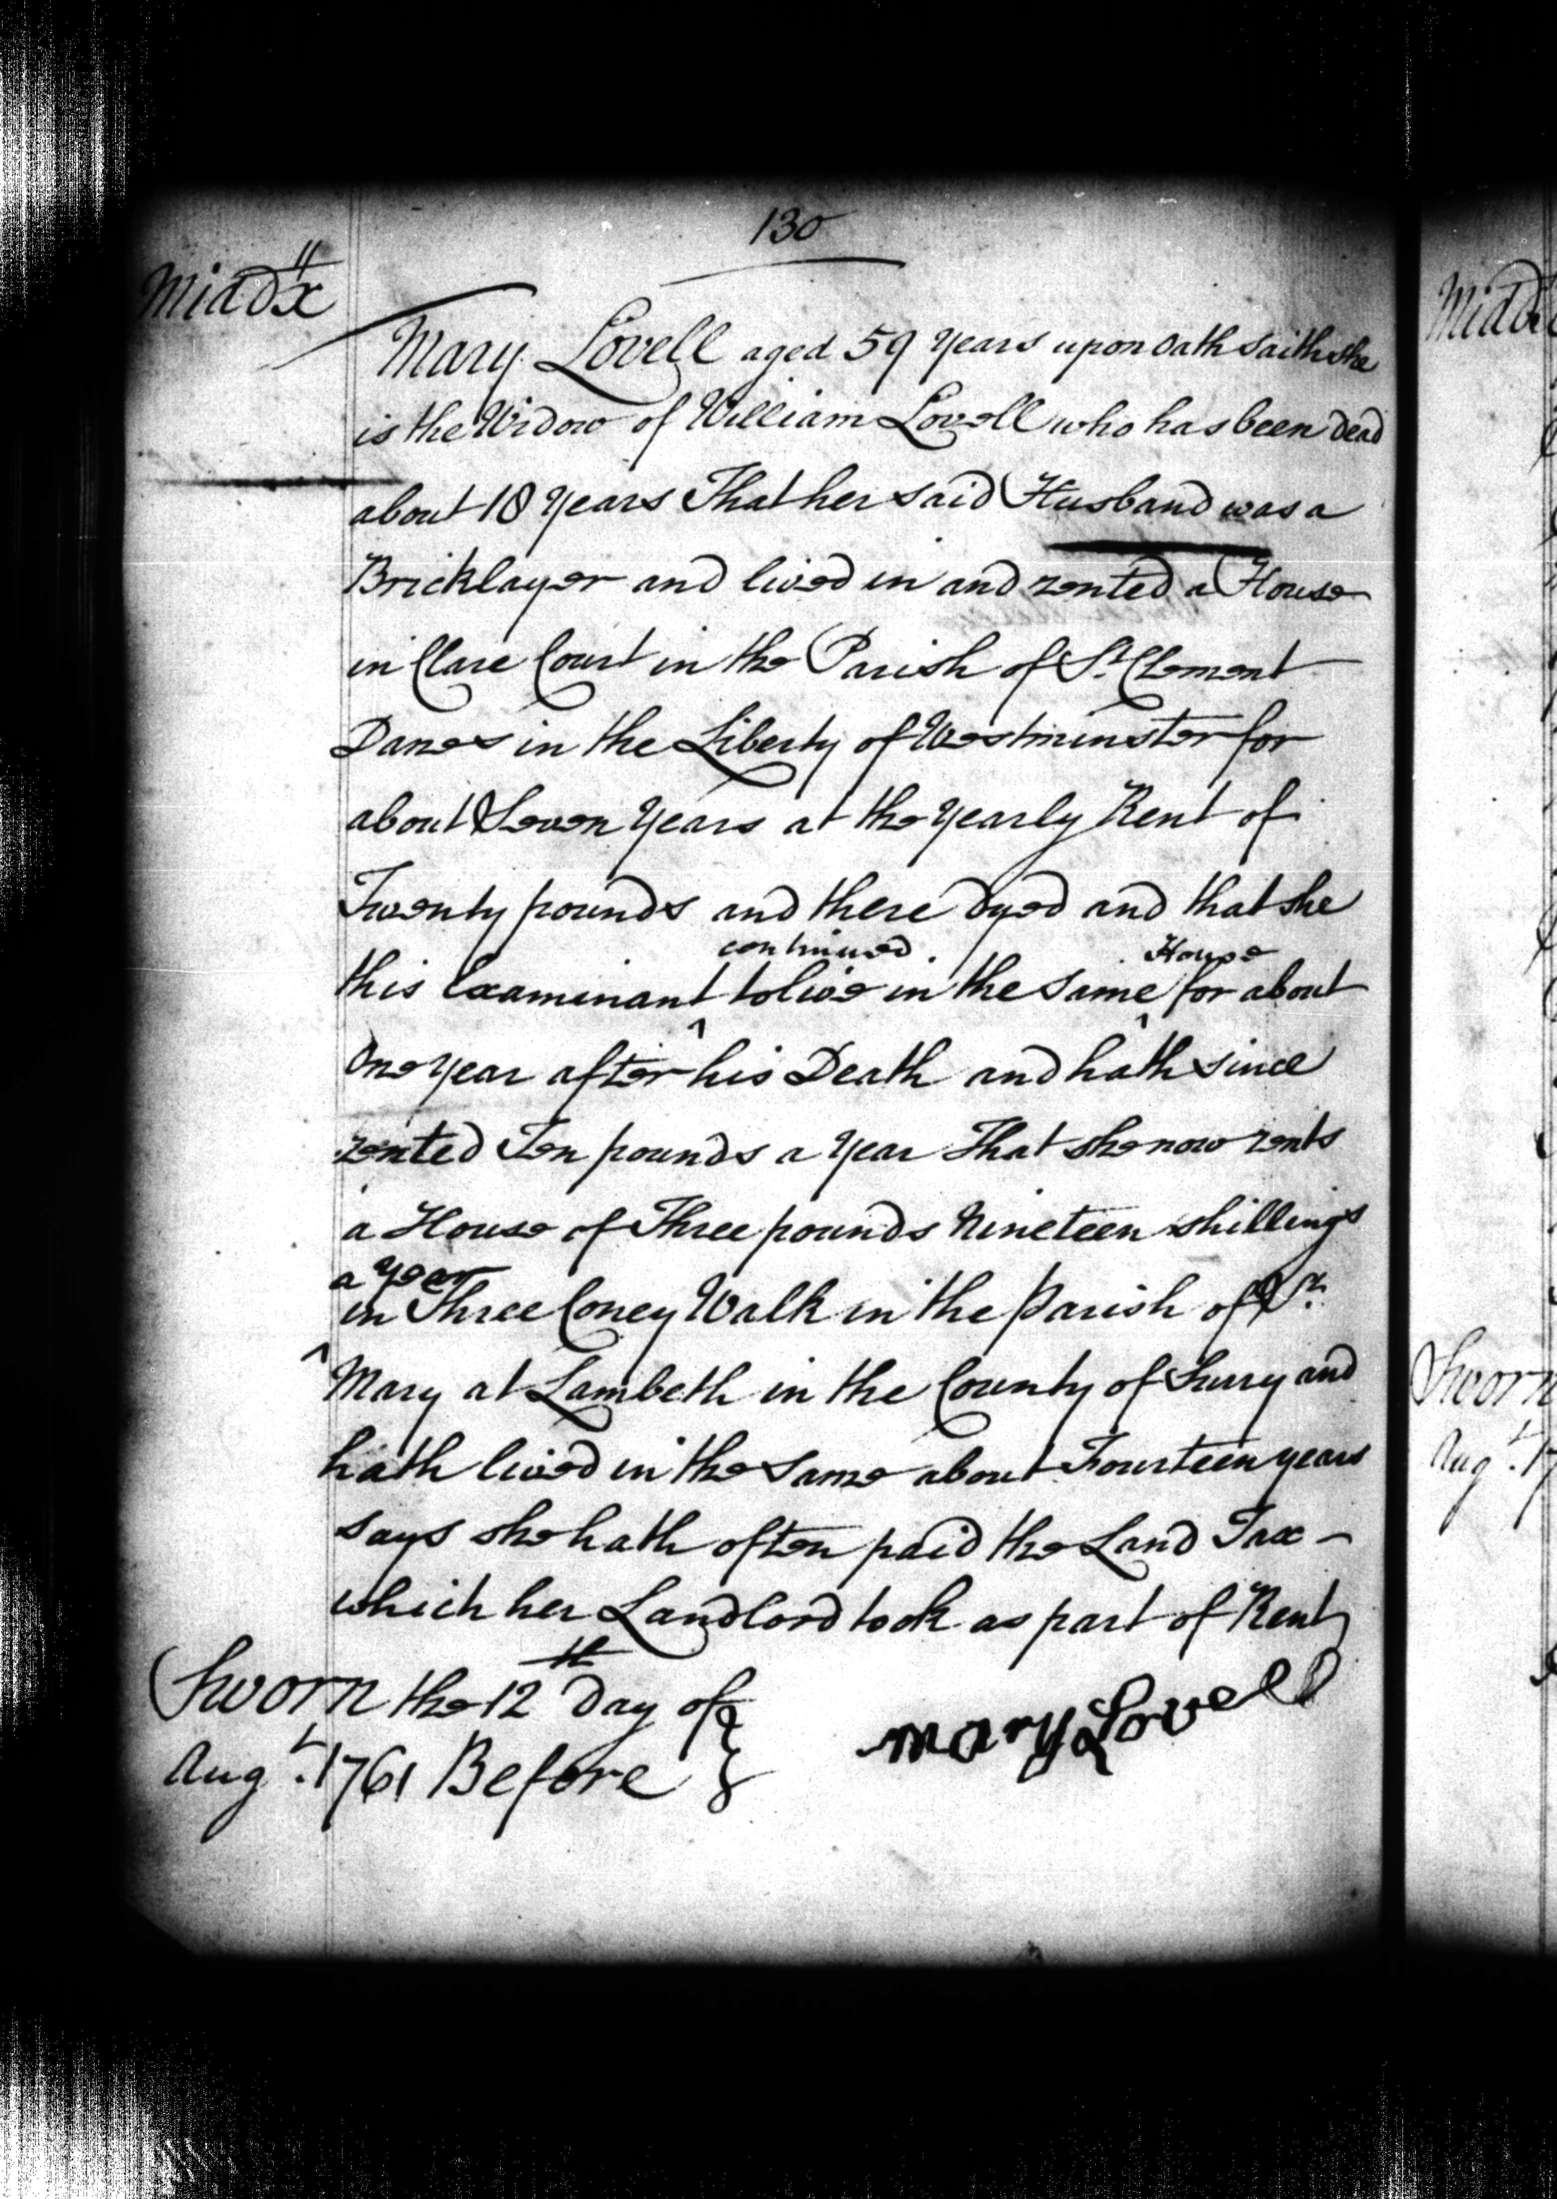 130
Midd"x
Mary Lovell aged 59 Years upon Oath saith she
is the Widow of William Lovell who has been dead
about 18 Years That her said Husband was a
Bricklayer and lived in and rented a House
in Clare Court in the Parish of St. Clement
Danes in the Liberty of Westminster for
about Seven Years at the Yearly Rent of
Twenty pounds and there dyed and that she
continued House
this Examinant ^ to live in the same ^ for about
One Year after his Death and hath since
rented Ten pounds a Year That she now rents
a House of Three pounds Nineteen shillings
a Year
^ in Three Coney Walk in the Parish of St.
Mary at Lambeth in the County of Surry and
hath lived in the same about Fourteen years
says she hath often paid the Land Tax -
which her Landlord took as part of Rent
Sworn the 12th Day of
Augt. 1761 Before
Mary Lovell
Sworn